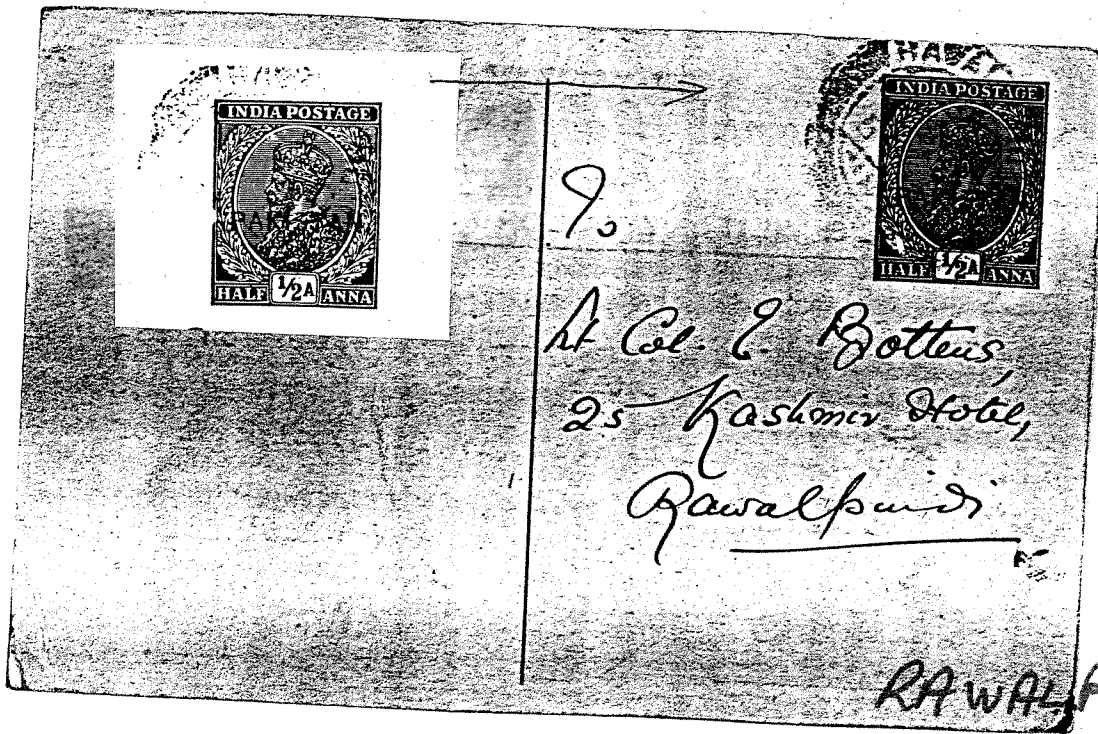 INDIA POSTAGE
PAKISTAN
HALF 1/2A ANNA
HAVE
INDIA POSTAGE
HALF 1/2A ANNA
Lt Col. E.
25 Kashmir Hotel,
Rawalpindi
RAWALP